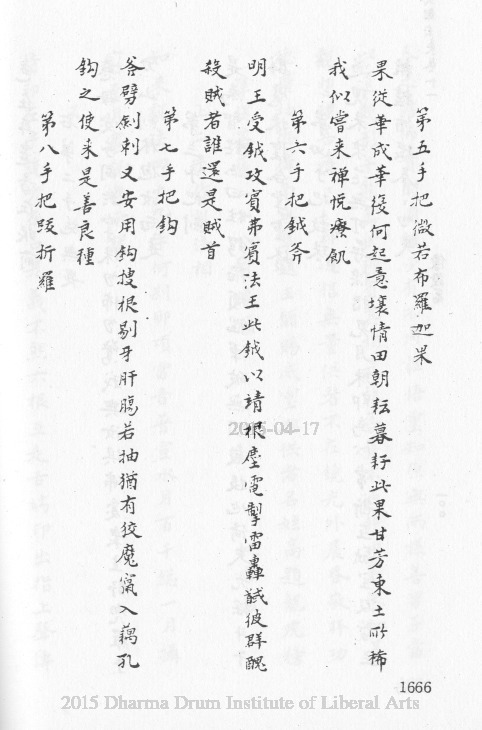 第五手把微若布羅迦果
果從華成華復何起意壤情田朝耘暮耔此果甘芳東土所稀
我似嘗来禅悅療飢
第六手把鉞斧
明王受鉞攻賓弗賓法王此鉞以靖根塵電掣雷轟馘彼群醜
殺賊者誰還是賊首
第七手把鈎
斧劈劍刺又安用鈎搜根剔牙肝腸若抽猶有狡魔竄入藕孔
鈎之使来是善良種
第八手把跋折羅
2015-04-17
1666
2015 Dharma Drum Institute of Liberal Arts